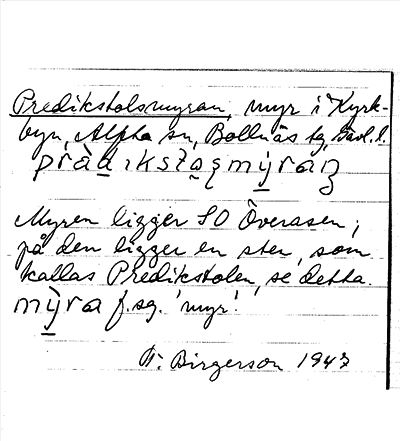 Predikstolsmyran, myr i Kyrk-
byn, Alfta sn, Bollnäs tg, Gävl. l.
prädikstɑ̀sm̀ýran
Myren ligger SO Överåsen;
på den ligger en sten, som
kallas Predikstolen, se detta.
mỳra f. sg. 'myr'.
Birgerson 1947